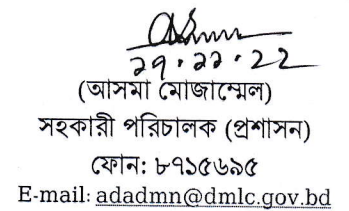 ২৭.১১.২২
(আসমা মোজাম্মেল)
সহকারী পরিচালক (প্রশাসন)
ফোন: ৮৭১৫৬৯৫
E-mail: adadmn@dmlc.gov.bd